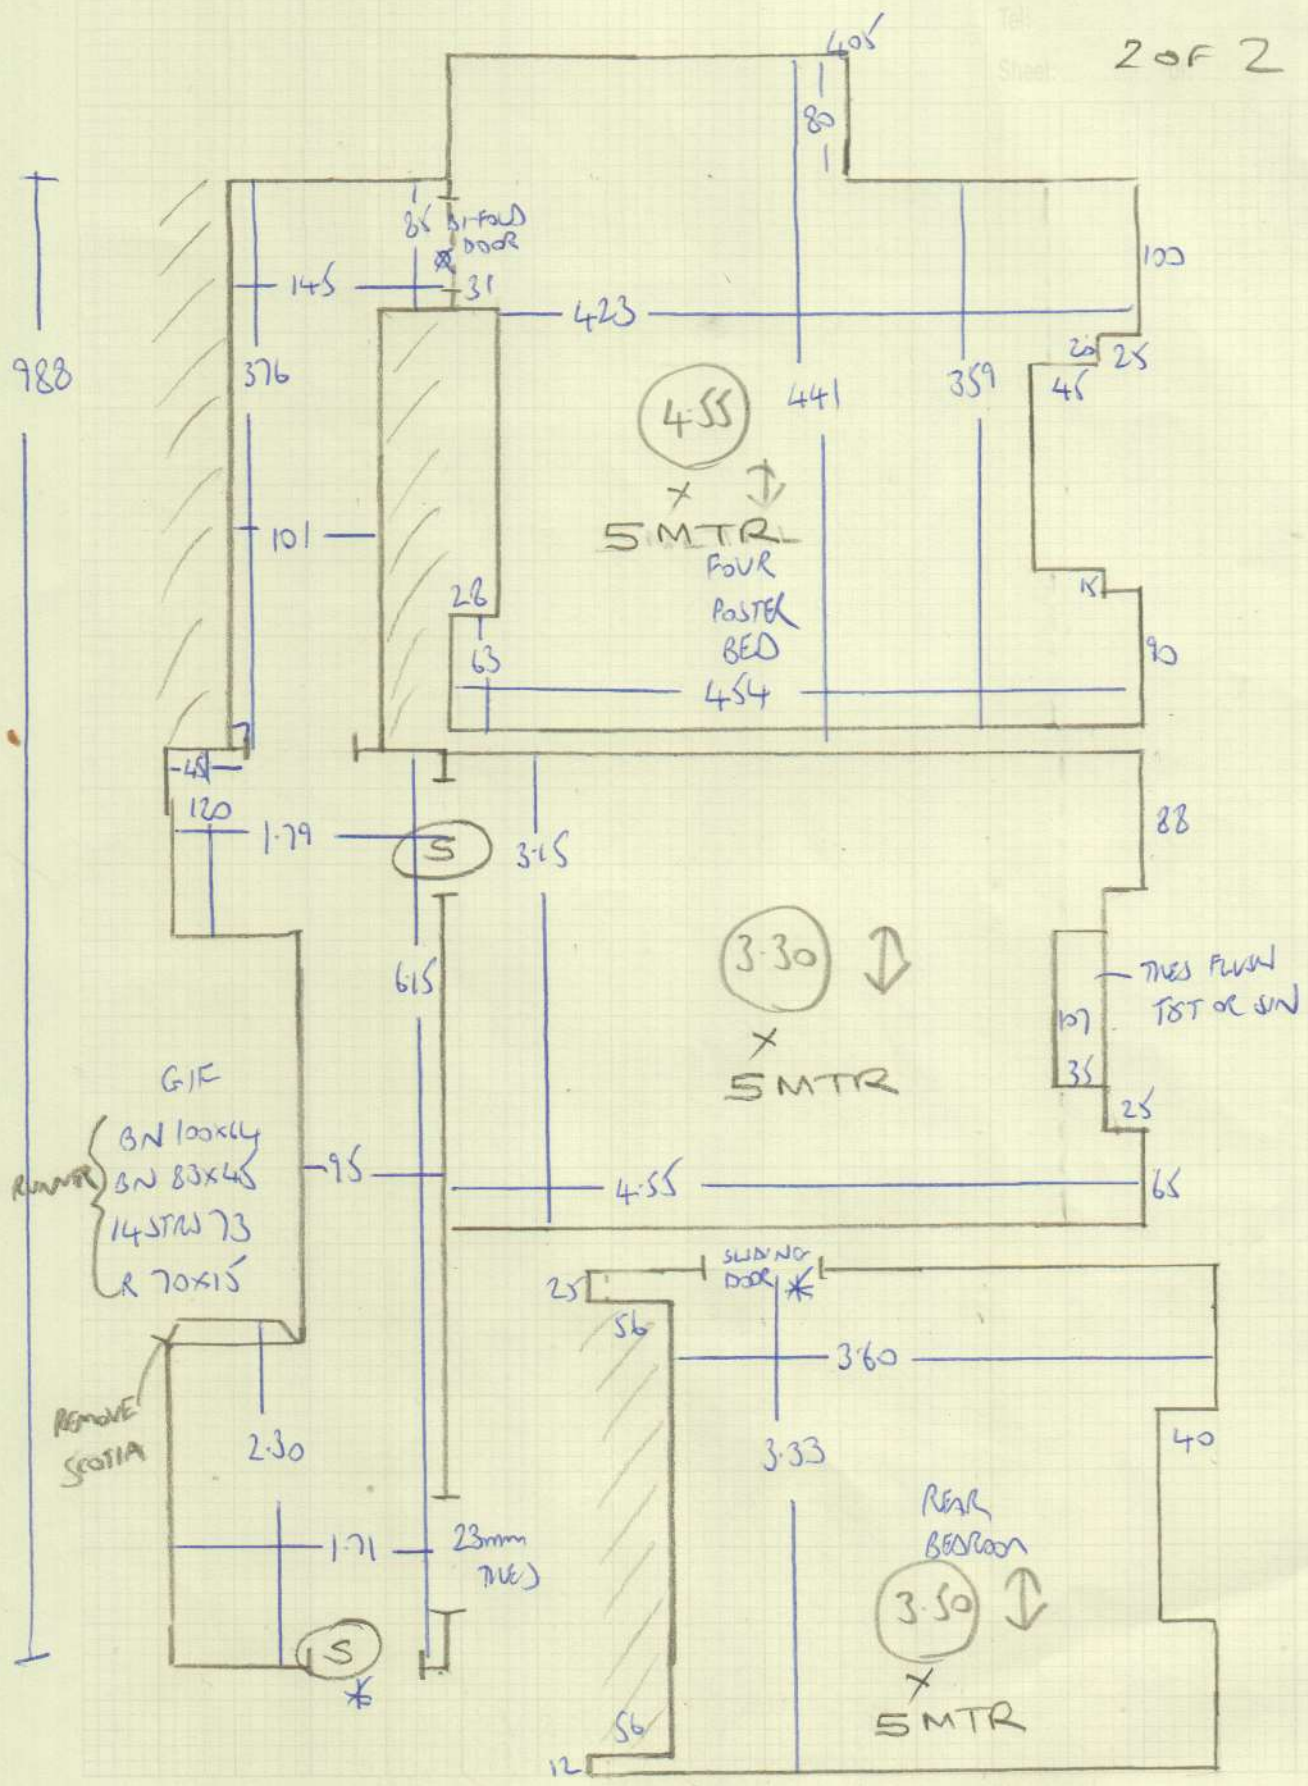 Tel:
Sheet:
2 OF 2
405
80
85 BI-FOLD
DOOR
*
31
145
423
100
20
25
45
988
376
4.55
441
359
×
5 MTR
FOUR
POSTER
BED
101
28
63
15
90
454
7
45
120
1.79
S
3.15
88
615
3.30
×
5 MTR
TILES FLUSH
TST OR SIN
107
35
25
65
G/F
RUNNER
BN 100×64
BN 83×45
14 STRS 73
R 70×15
95
4.55
SLIDING
DOOR *
25
56
3.60
REMOVE
SCOTIA
2.30
3.33
40
REAR
BEDROOM
1.71
23mm
TILES
3.50
×
5 MTR
S
*
56
12